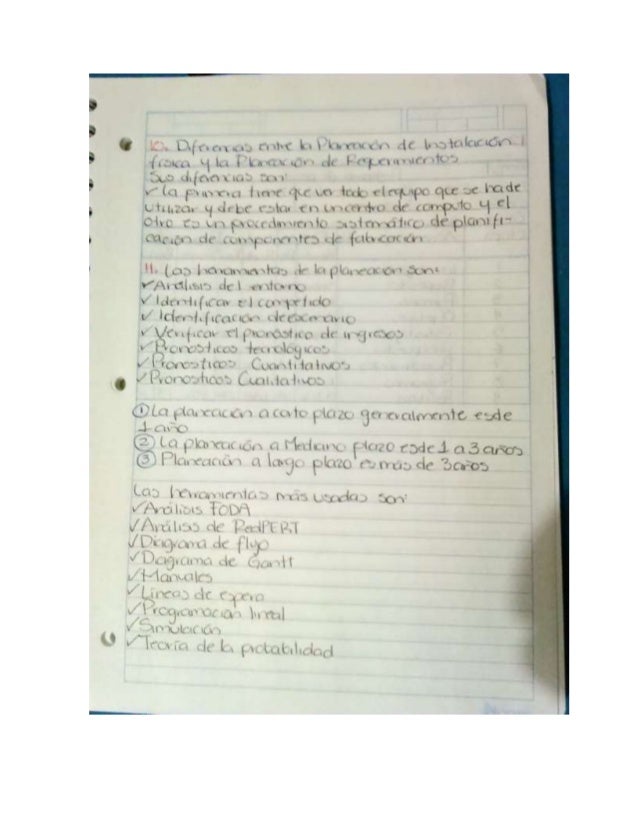 10. Diferencias entre la Planeación de Instalación
física y la Planeación de Requerimientos
Sus diferencias son:
✓ La primera tiene que ver todo el equipo que se ha de
utilizar y debe estar en un centro de computo y el
otro es un procedimiento sistemático de planifi-
cación de componentes de fabricación.
11. Las herramientas de la planeación son:
✓ Análisis del entorno
✓ Identificar el competido
✓ Identificación de escenario
✓ Verificar el pronóstico de ingresos
✓ Pronosticos tecnológicos
✓ Pronosticos Cuantitativos
✓ Pronosticos Cualitativos
① La planeación a corto plazo generalmente es de
1 año
② La planeación a Mediano plazo es de 1 a 3 años
③ Planeación a largo plazo es más de 3 años
Las herramientas más usadas son:
✓ Análisis FODA
✓ Análisis de Red PERT
✓ Diagrama de flujo
✓ Diagrama de Gantt
✓ Manuales
✓ Lineas de espera
✓ Programación lineal
✓ Simulación
✓ Teoría de la probabilidad